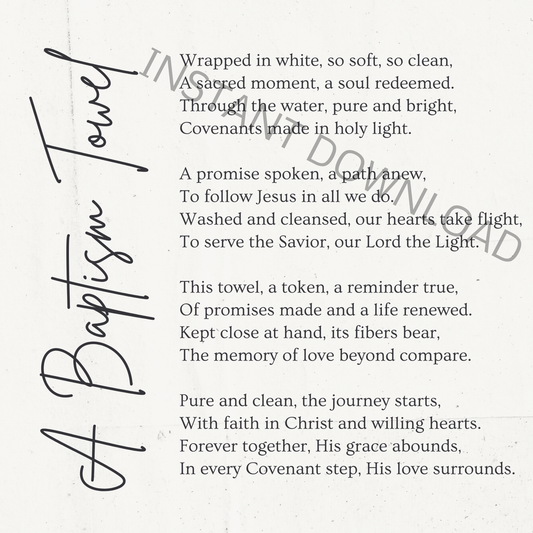 A Baptism Towel
Wrapped in white, so soft, so clean,
A sacred moment, a soul redeemed.
Through the water, pure and bright,
Covenants made in holy light.
A promise spoken, a path anew,
To follow Jesus in all we do.
Washed and cleansed, our hearts take flight,
To serve the Savior, our Lord the Light.
This towel, a token, a reminder true,
Of promises made and a life renewed.
Kept close at hand, its fibers bear,
The memory of love beyond compare.
Pure and clean, the journey starts,
With faith in Christ and willing hearts.
Forever together, His grace abounds,
In every Covenant step, His love surrounds.
INSTANT DOWNLOAD